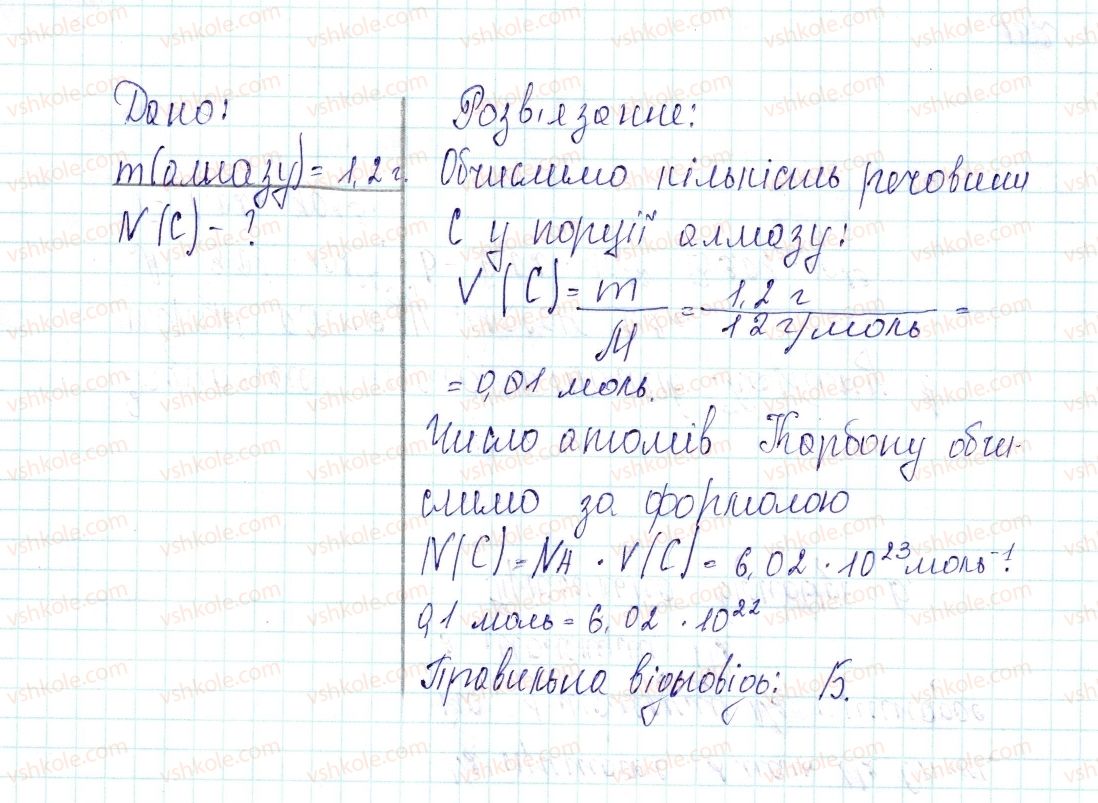 Дано:
m(алмазу) = 1,2 г.
N(C) - ?
Розв'язання:
Обчислимо кількість речовини
C у порції алмазу:
ν(C) = m/M = 1,2 г/12 г/моль =
= 0,01 моль.
Число атомів Карбону обчи-
слимо за формолою
N(C) = NA · ν(C) = 6,02 · 10²³ моль⁻¹ ·
0,1 моль = 6,02 · 10²²
Правильна відповідь: Б.
vshkole.com